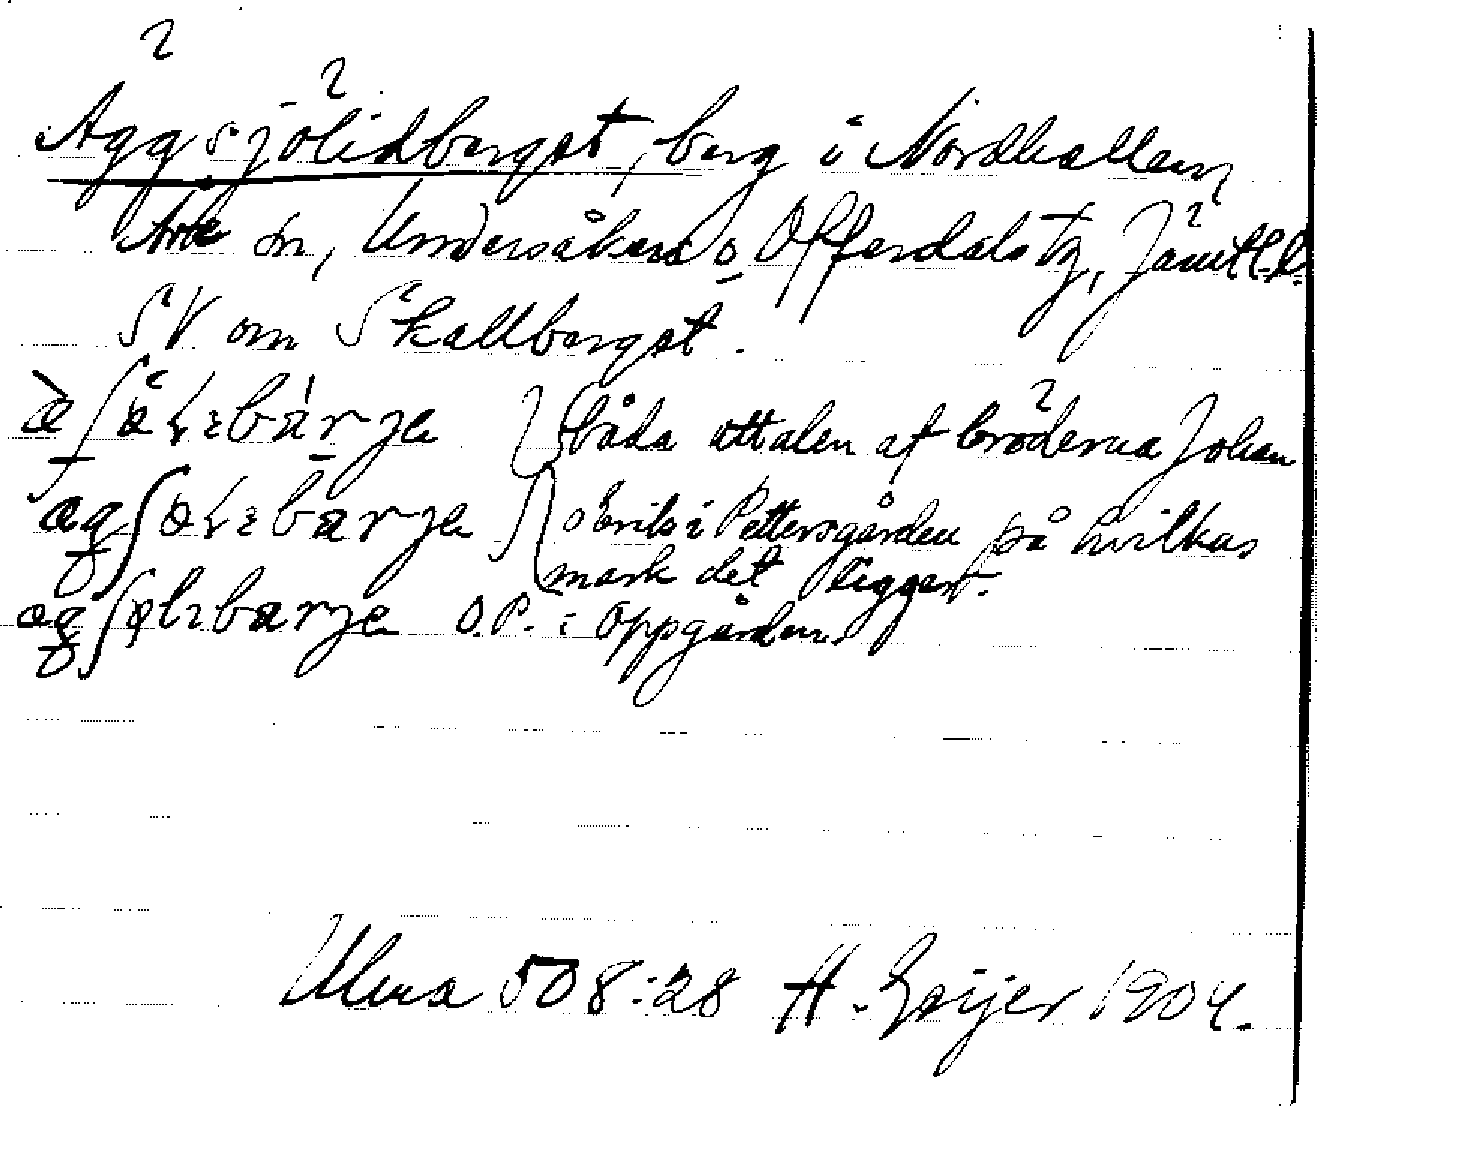 Äggsjölidberget, berg i Nordhallen
Åre sn, Undersåkers o Offerdals tg, Jämtl. l.
SV om Skallberget.
båda uttalen af bröderna Johan
o Erik i Pettersgården på hvilkas
mark det ligger.
O.P. i Oppgården.
Ulma 508:28 H. Geijer 1904.